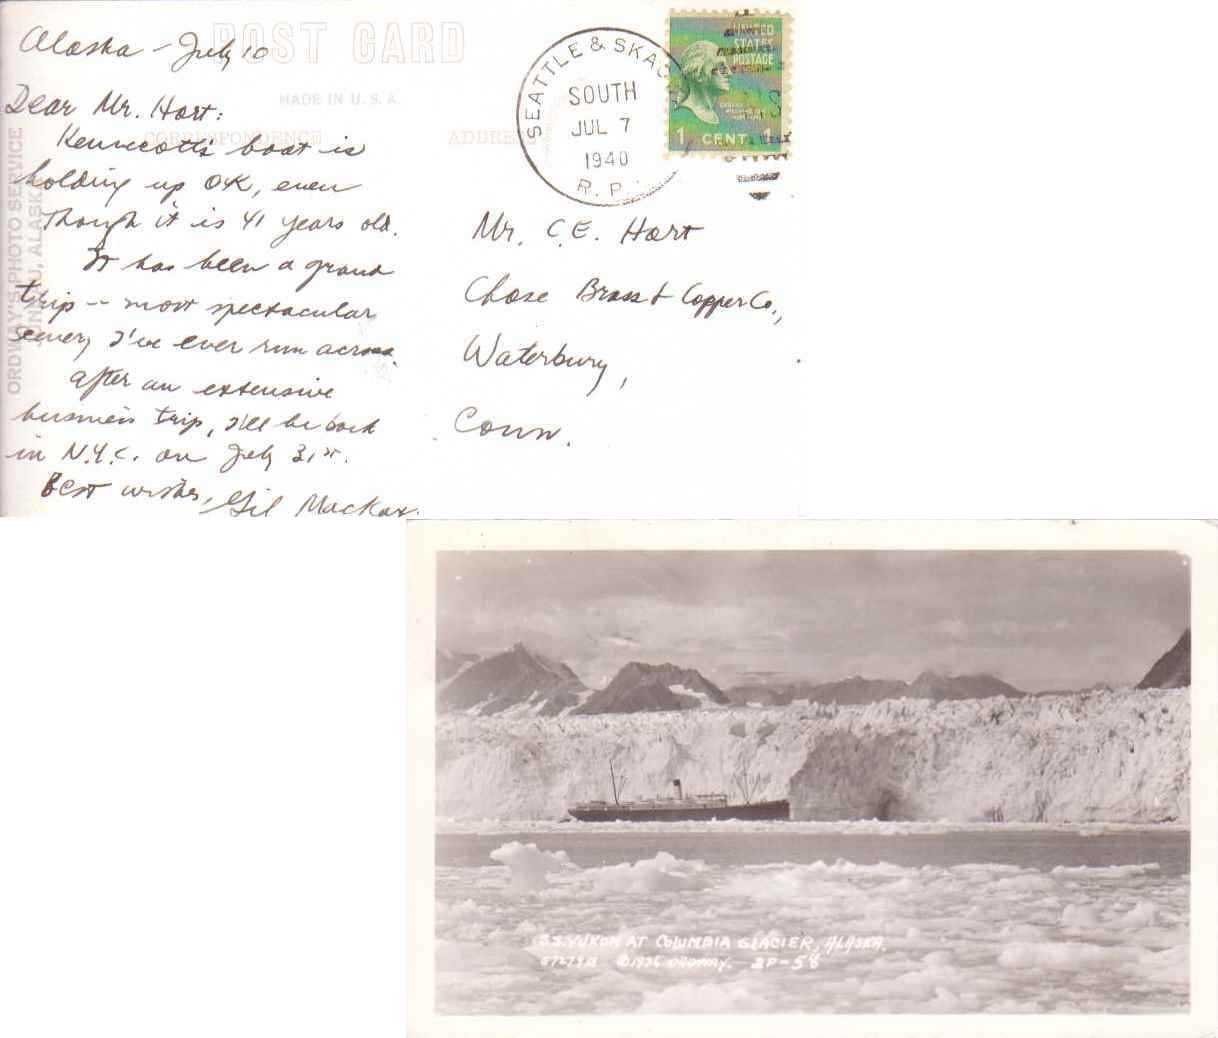 POST CARD
MADE IN U.S.A.
CORRESPONDENCE
ADDRESS
ORDWAY'S PHOTO SERVICE
JUNEAU, ALASKA
Alaska - July 10
Dear Mr. Hart:
Kennecott's boat is
holding up OK, even
though it is 41 years old.
It has been a grand
trip -- most spectacular
scenery I've ever run across.
After an extensive
business trip, I'll be back
in N.Y.C. on July 31st.
Best wishes, Gil
SEATTLE & SKAG
SOUTH
JUL 7
1940
R.P.
UNITED
STATES
POSTAGE
1 CENT 1
Mr. C.E. Hart
Chase Brass & Copper Co.,
Waterbury,
Conn.
S.S. YUKON AT COLUMBIA GLACIER, ALASKA.
©1936 ORDWAY. 2P-58